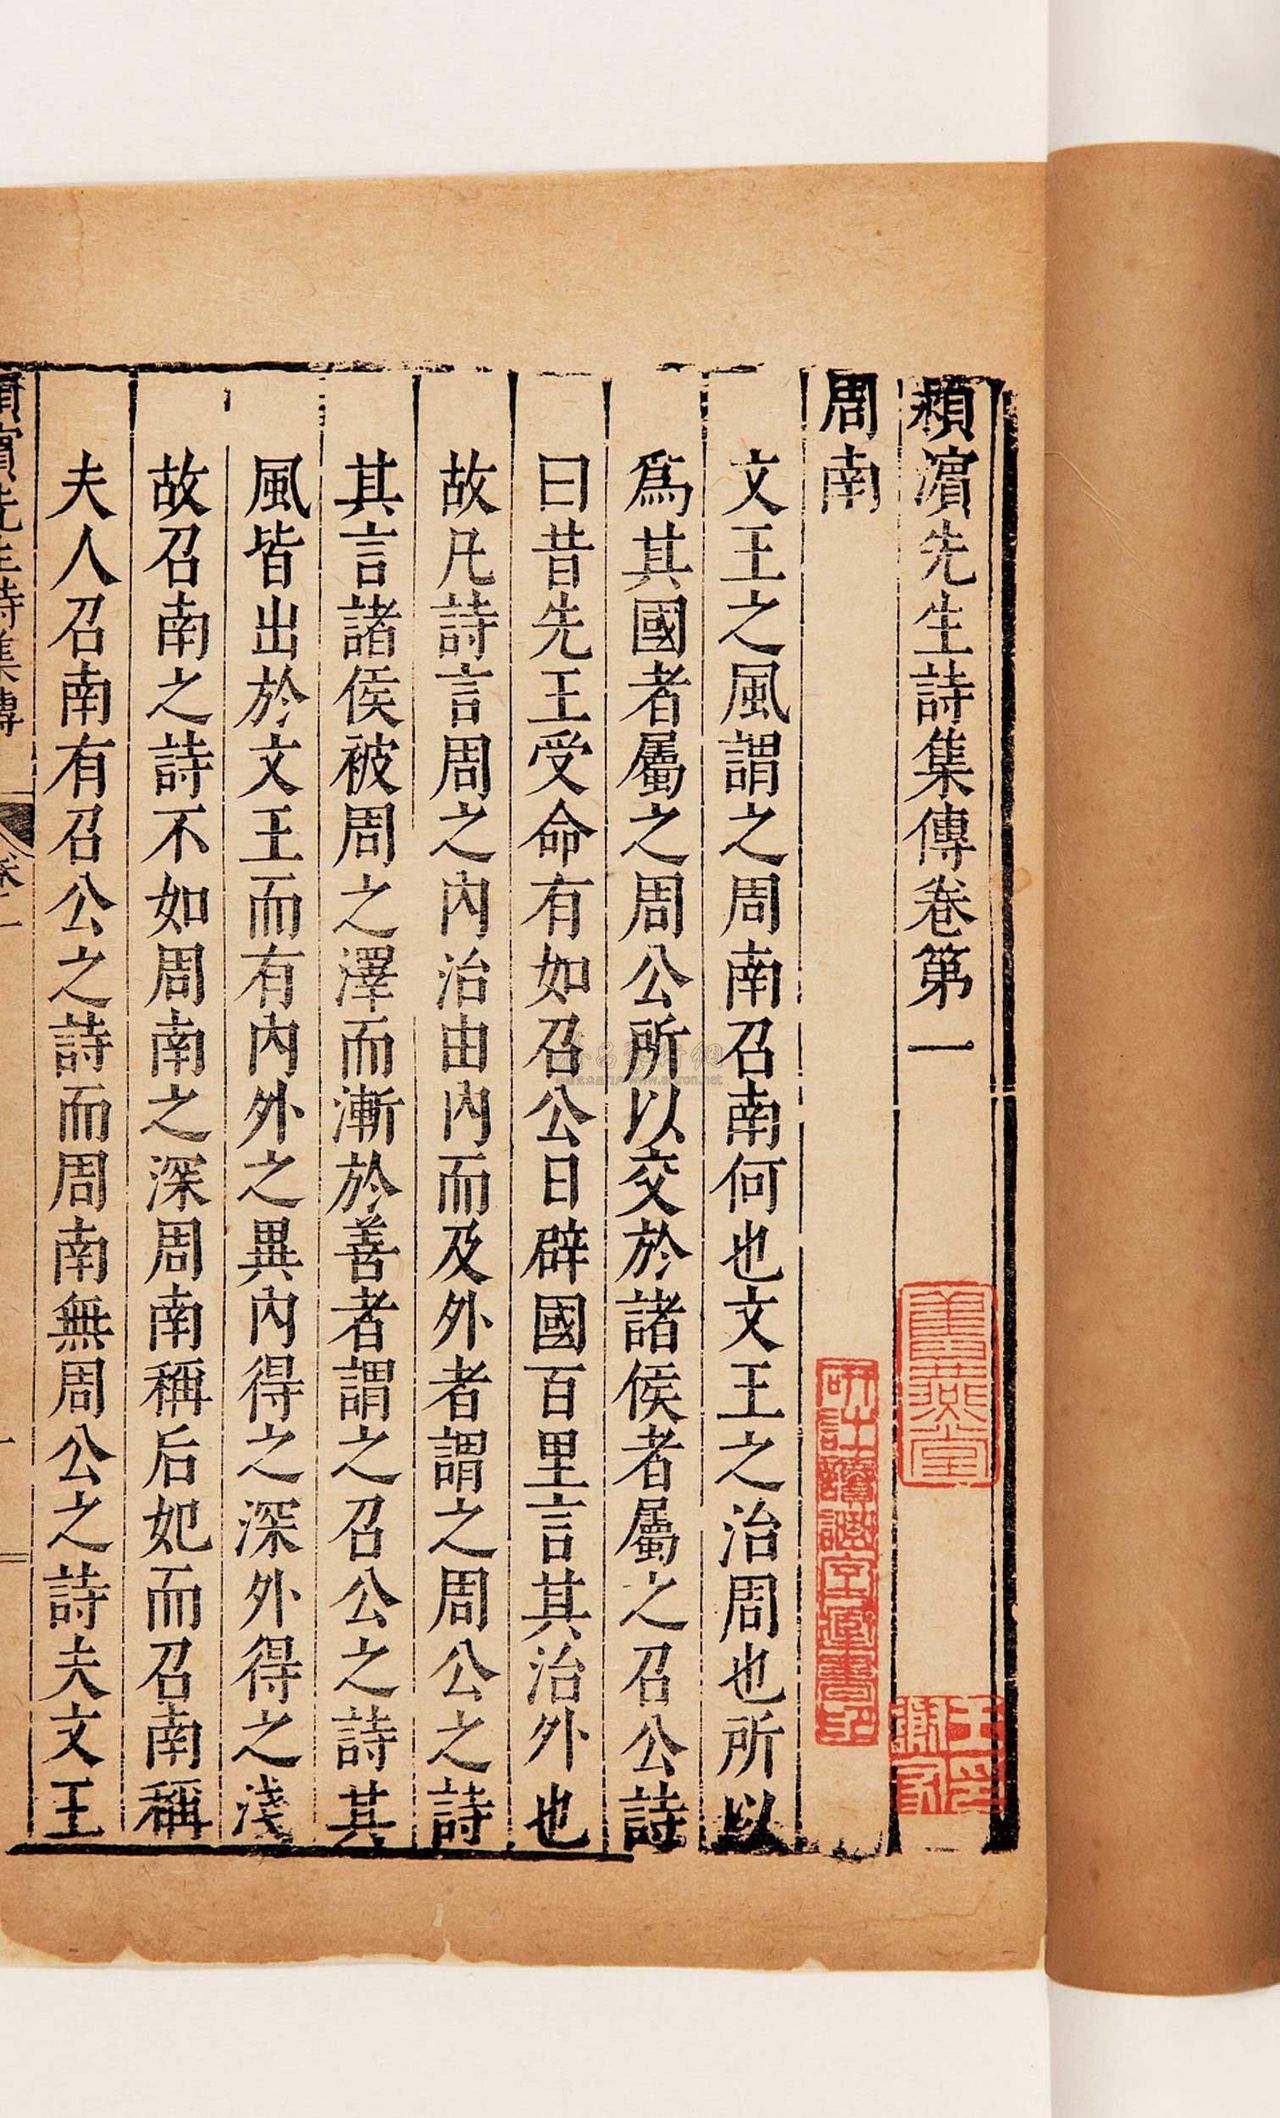 潁濱先生詩集傳卷第一
周南
文王之風謂之周南召南何也文王之治周也所以
爲其國者屬之周公所以交於諸侯者屬之召公詩
曰昔先王受命有如召公日辟國百里言其治外也
故凡詩言周之內治由內而及外者謂之周公之詩
其言諸侯被周之澤而漸於善者謂之召公之詩其
風皆出於文王而有內外之異內得之深外得之淺
故召南之詩不如周南之深周南稱后妃而召南稱
夫人召南有召公之詩而周南無周公之詩夫文王
潁濱先生詩集傳 卷一